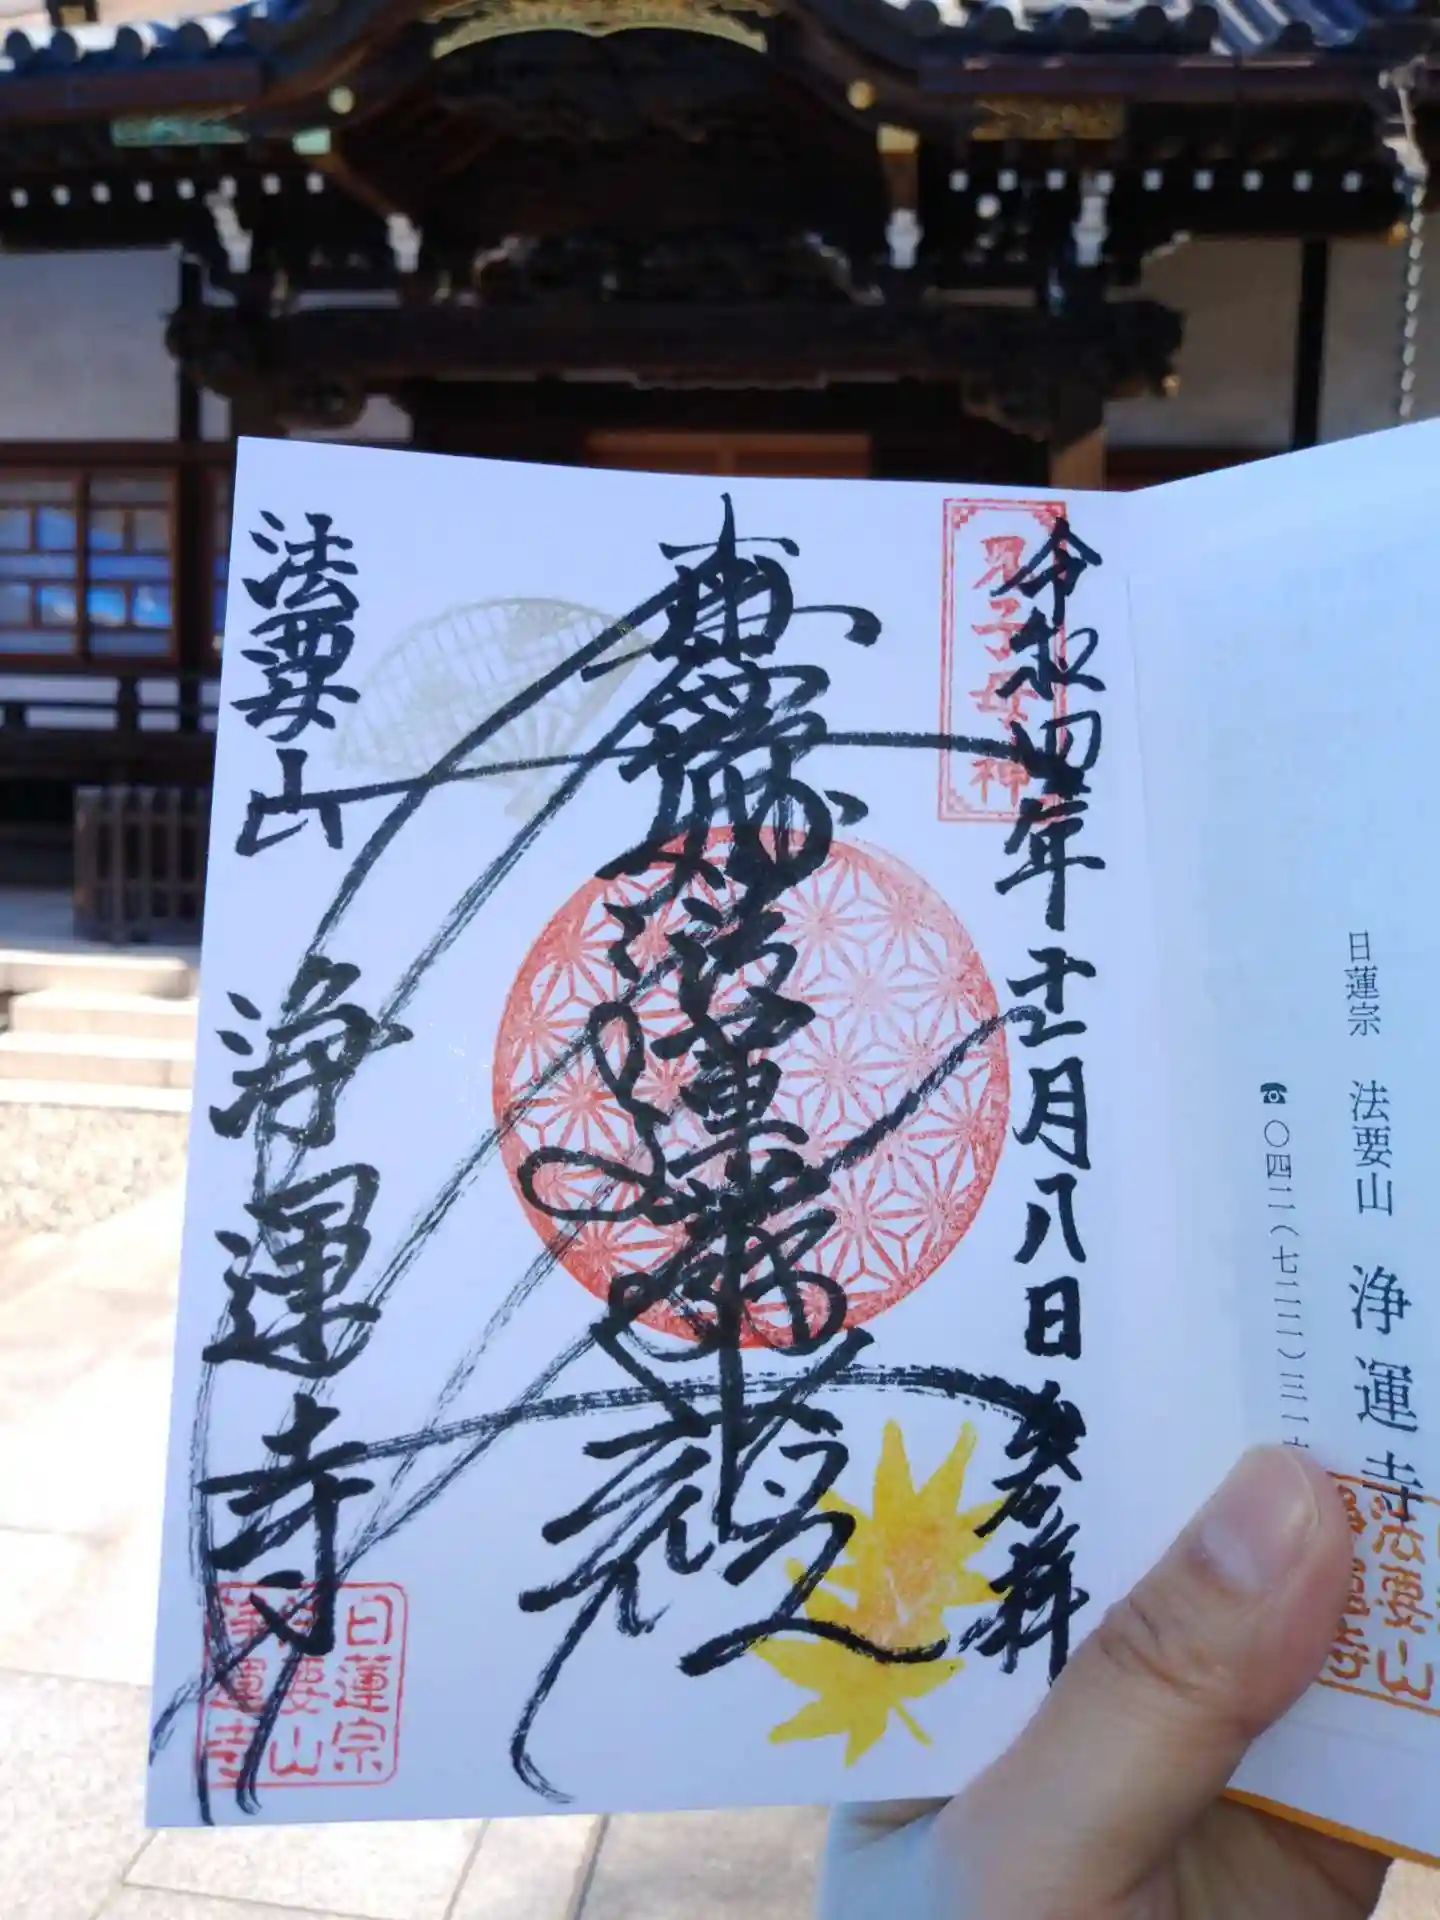 日蓮宗 法要山 浄運寺
法要山
令和四年十二月八日 参拝
鬼子母神
南無妙法蓮華経
法要山
浄運寺
日蓮宗
法要山
浄運寺